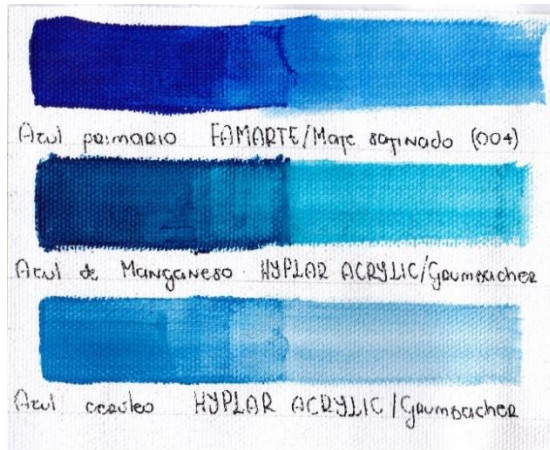 Azul primario FAMARTE/Mate satinado (004)
Azul de Manganeso HYPLAR ACRYLIC/Grumbacher
Azul ceruleo HYPLAR ACRYLIC/Grumbacher